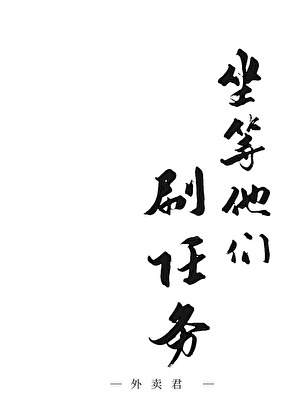 坐等他们
刷任务
— 外卖君 —